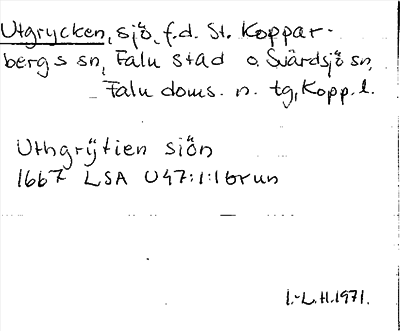 Utgrycken, sjö, f.d. St. Koppar-
bergs sn, Falu stad o. Svärdsjö sn,
Falu doms. n. tg, Kopp. l.
Uthgrÿtien siön
1667 LSA U47:1:1 brun
I.-L.H. 1971.